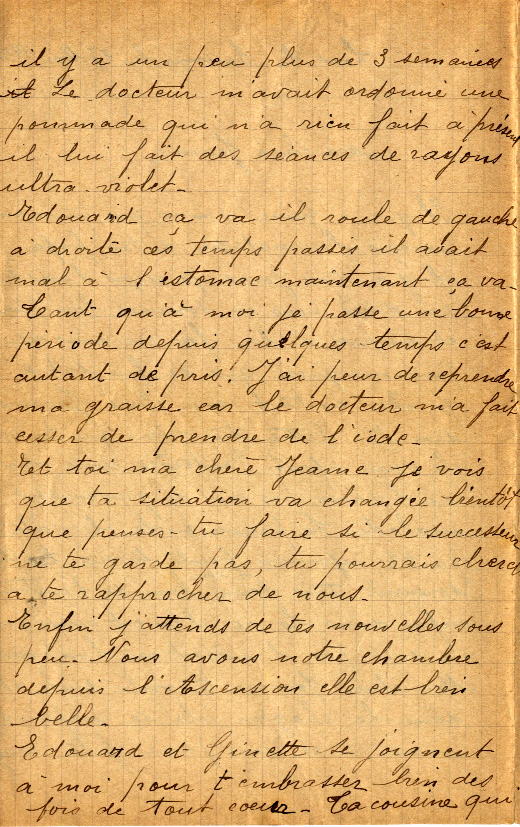 il y a un peu plus de 3 semaines
Le docteur m'avait ordonné une
pommade qui n'a rien fait à présent
il lui fait des séances de rayons
ultra-violet-
Edouard ça va il roule de gauche
à droite ces temps passés il avait
mal à l'estomac maintenant ça va-
Tant qu'à moi je passe une bonne
période depuis quelques temps c'est
autant de pris. J'ai peur de reprendre
ma graisse car le docteur m'a fait
cesser de prendre de l'iode-
Et toi ma chère Jeanne je vois
que ta situation va changée bientôt
que penses-tu faire si le successeur
ne te garde pas, tu pourrais cherch
a te rapprocher de nous-
Enfin j'attends de tes nouvelles sous
peu- Nous avons notre chambre
depuis l'Ascension elle est bien
belle-
Edouard et Ginette se joignent
à moi pour t'embrasser bien des
fois de tout coeur- Ta cousine qui